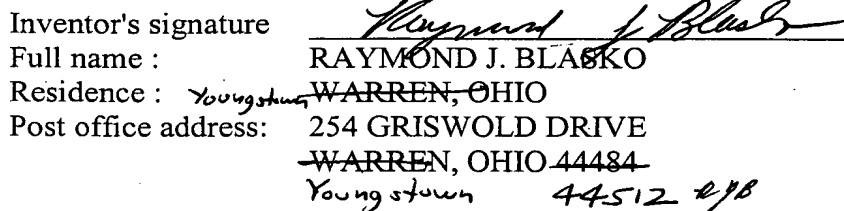 Inventor's signature Raymond J Blasko
Full name : RAYMOND J. BLASKO
Residence : Youngstown WARREN, OHIO
Post office address: 254 GRISWOLD DRIVE
WARREN, OHIO 44484
Youngstown 44512 RJB